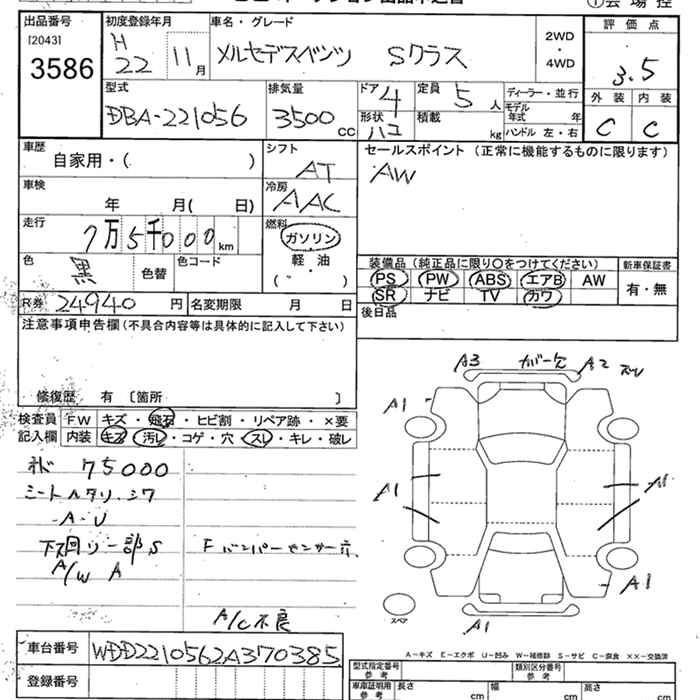 出品番号 初度登録年月 車名・グレード 2WD・4WD 評価点
[2043] H 22 11月 メルセデスベンツ Sクラス 3.5
3586
型式 排気量 ドア 4 定員 5人 ディーラー・並行 外装 内装
DBA-221056 3500cc 形状 ハコ 積載 kg モデル年式 年 C C
ハンドル 左・右
車歴 シフト セールスポイント (正常に機能するものに限ります)
自家用・( ) AT AW
車検 冷房
年 月( 日) AAC
走行 燃料
7万5千000km ガソリン
色 黒 色替 色コード 軽・油
( )
装備品 (純正品に限り○をつけてください) 新車保証書
PS PW ABS エアB AW 有・無
SR ナビ TV カワ
R券 24940円 名変期限 月 日
後日品
注意事項申告欄 (不具合内容等は具体的に記入して下さい)
修復歴 有 〔箇所 〕
検査員記入欄 FW キズ・飛石・ヒビ割・リペア跡・×要
内装 キズ・汚レ・コゲ・穴・スレ・キレ・破レ
A3 ガバー欠 A2
A1
75000
A1
A・U
A/W A
A1
A/C不良
A1
スペア
A－キズ E－エクボ U－凹み W－補修跡 S－サビ C－腐食 ××－交換済
車台番号 WDD2210562A370385
登録番号
型式指定番号 参考 類別区分番号 参考
車庫証明用 参考 長さ cm 幅 cm 高さ cm